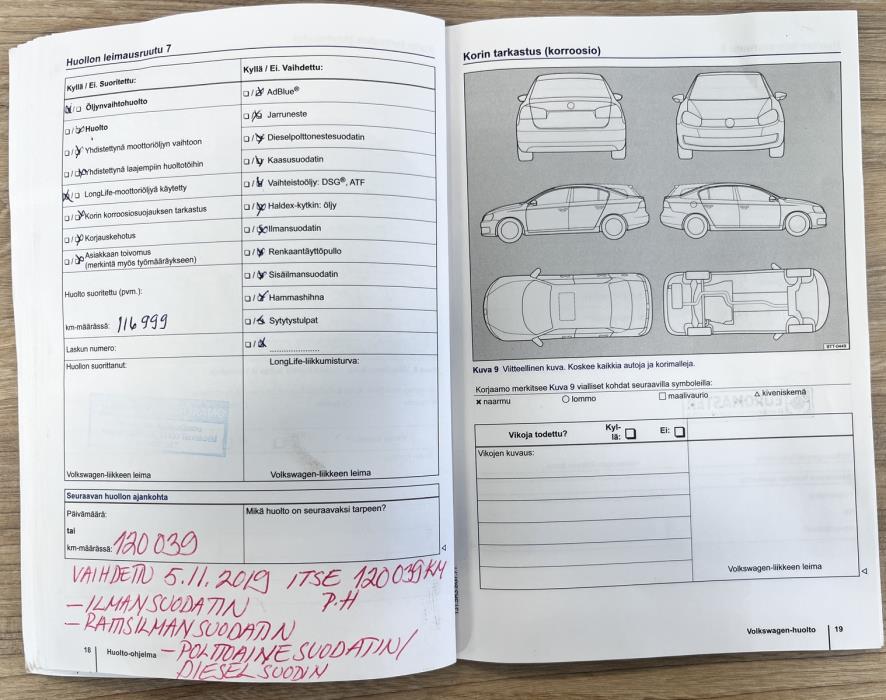 Huollon leimausruutu 7
Kyllä / Ei. Suoritettu:
Öljynvaihtohuolto
Huolto
Yhdistettynä moottoriöljyn vaihtoon
Yhdistettynä laajempiin huoltotöihin
LongLife-moottoriöljyä käytetty
Korin korroosiosuojauksen tarkastus
Korjauskehotus
Asiakkaan toivomus
(merkintä myös työmääräykseen)
Huolto suoritettu (pvm.):
km-määrässä: 116 999
Laskun numero:
Huollon suorittanut:
Volkswagen-liikkeen leima
Kyllä / Ei. Vaihdettu:
AdBlue®
Jarruneste
Dieselpolttonestesuodatin
Kaasusuodatin
Vaihteistoöljy: DSG®, ATF
Haldex-kytkin: öljy
Ilmansuodatin
Renkaantäyttöpullo
Sisäilmansuodatin
Hammashihna
Sytytystulpat
LongLife-liikkumisturva:
Volkswagen-liikkeen leima
Seuraavan huollon ajankohta
Päivämäärä:
tai
km-määrässä: 120 039
Mikä huolto on seuraavaksi tarpeen?
VAIHDETTU 5.11.2019 ITSE 120 039 KM
P.H
- ILMANSUODATIN
- RAITISILMANSUODATIN
- POLTTOAINESUODATIN/
DIESELSUODIN
18 Huolto-ohjelma
Korin tarkastus (korroosio)
BTT-0449
Kuva 9 Viitteellinen kuva. Koskee kaikkia autoja ja korimalleja.
Korjaamo merkitsee Kuva 9 vialliset kohdat seuraavilla symboleilla:
naarmu lommo maalivaurio kiveniskemä
Vikoja todettu? Kyl-
lä: Ei:
Vikojen kuvaus:
Volkswagen-liikkeen leima
Volkswagen-huolto 19